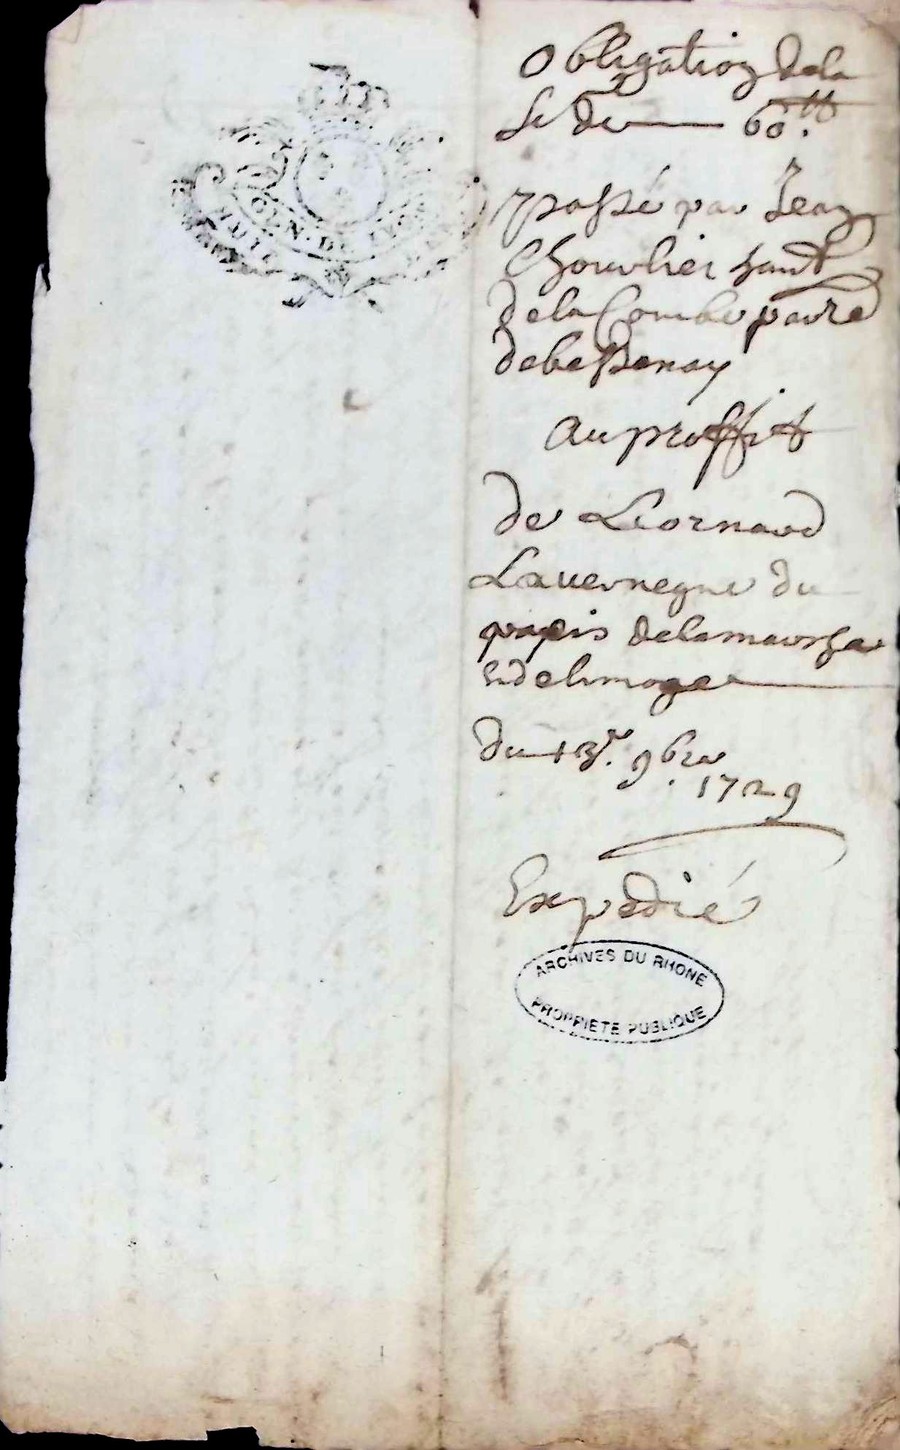 GEN. DE LYON
Obligation de la
Se de 60.tt
passé par Jean
Chouvlier hant
de la Combe parre
de bessenay
Au proffit
de Leornard
Lauernegne du
de la marche
du 13.e 9bre
1729
Expedié
ARCHIVES DU RHONE
PROPRIETE PUBLIQUE